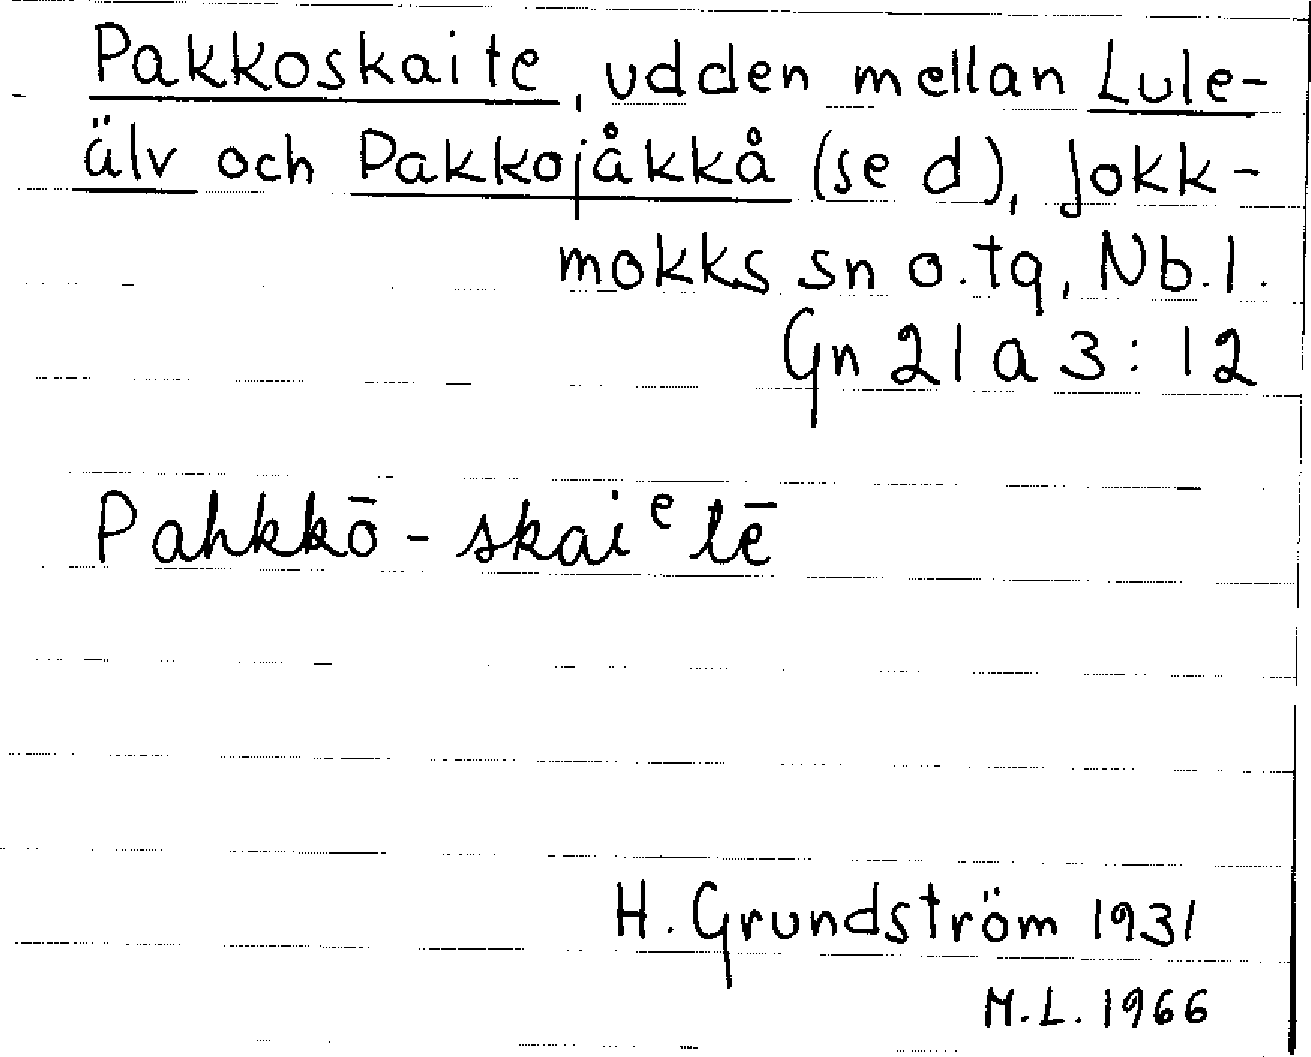 Pakkoskaite, udden mellan Lule-
älv och Pakkojåkkå (se d), Jokk-
mokks sn o. tg, Nb. l.
Gn 21 a 3:12
Pahkkō-skaiᵉtē
H. Grundström 1931
M.L. 1966